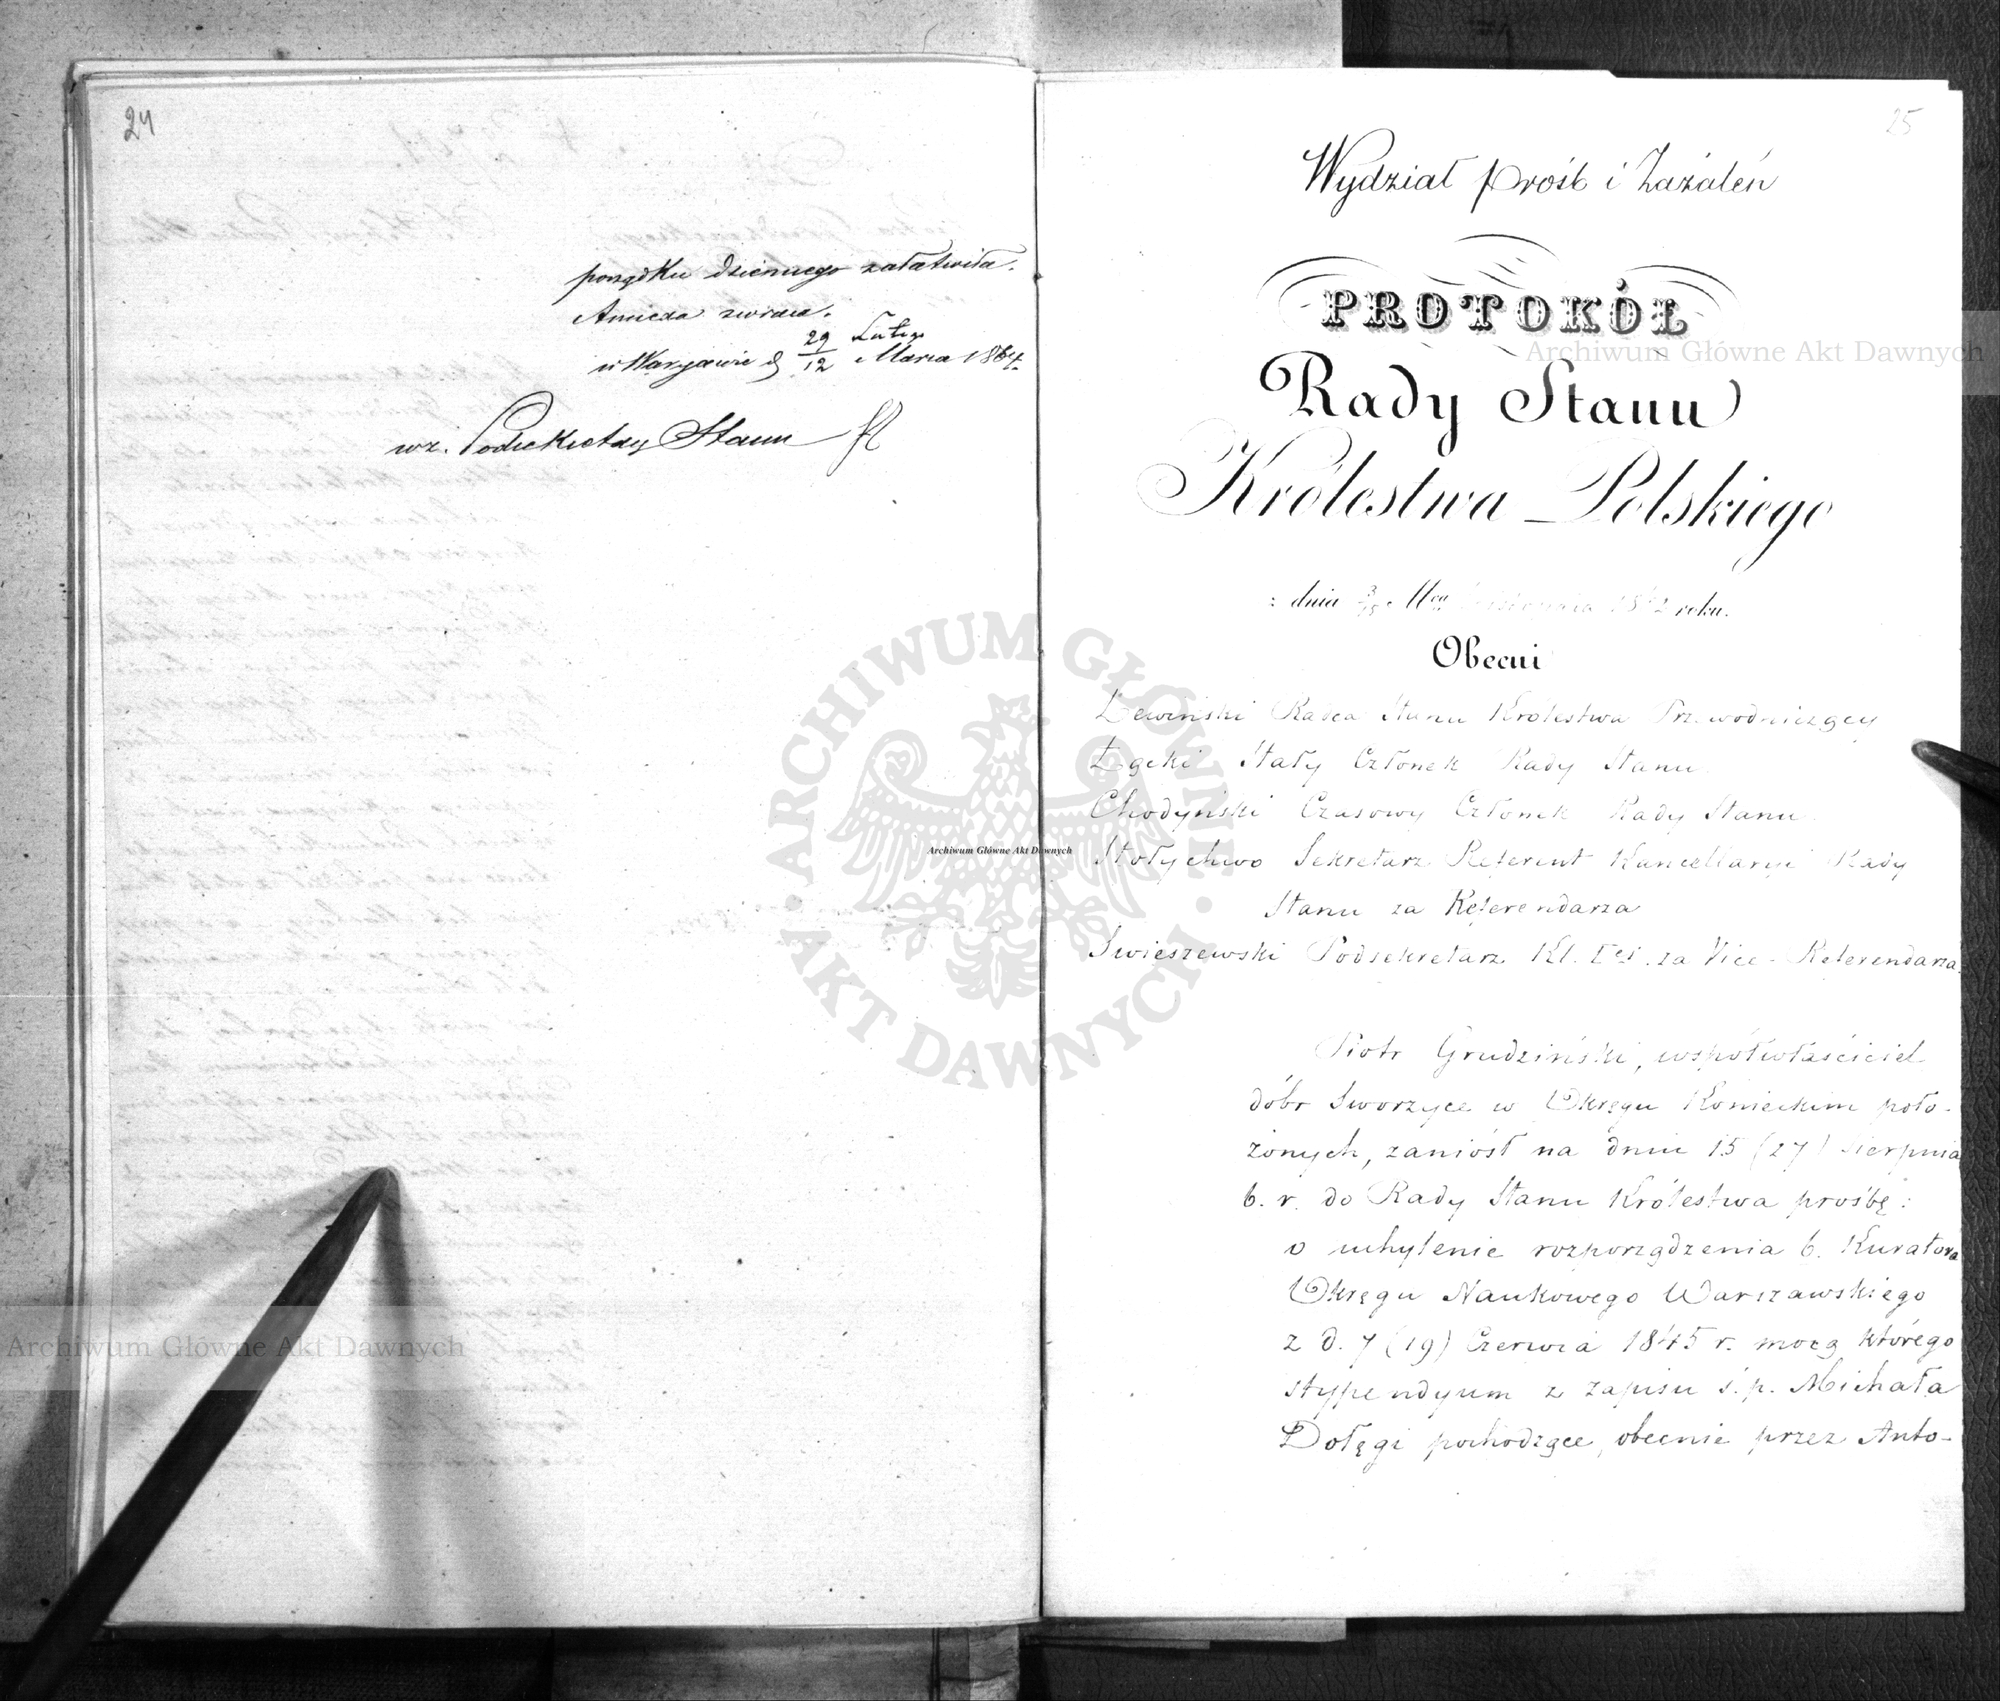 24
porządku dziennego załatwiła.
Annexa zwraca.
w Warszawie d 29/12 Lutego/Marca 1864.
wz. Podsekretarz Stanu
25
Wydział próśb i Zażaleń
PROTOKÓŁ
Rady Stanu
Królestwa Polskiego
: dnia 3/15 Mca 1862 roku.
Obecni
Lewiński Radca Stanu Królestwa Przewodniczący
Łącki Stały Członek Rady Stanu.
Chodyński Czasowy Członek Rady Stanu.
Stołychwo Sekretarz Referent Kancellaryi Rady
Stanu za Referendarza
Swieszewski Podsekretarz Kl. Iej. za Vice-Referendarza.
Piotr Grudziński, współwłaściciel
dóbr Sworzyce w Okręgu Koneckim poło-
żonych, zaniósł na dniu 15 (27) Sierpnia
b. r. do Rady Stanu Królestwa prośbę:
o uchylenie rozporządzenia b. Kuratora
Okręgu Naukowego Warszawskiego
z d. 7 (19) Czerwca 1845 r. mocą którego
stypendyum z zapisu ś. p. Michała
Dołęgi pochodzące, obecnie przez Anto-
Archiwum Główne Akt Dawnych
Archiwum Główne Akt Dawnych
Archiwum Główne Akt Dawnych
ARCHIWUM GŁÓWNE
AKT DAWNYCH